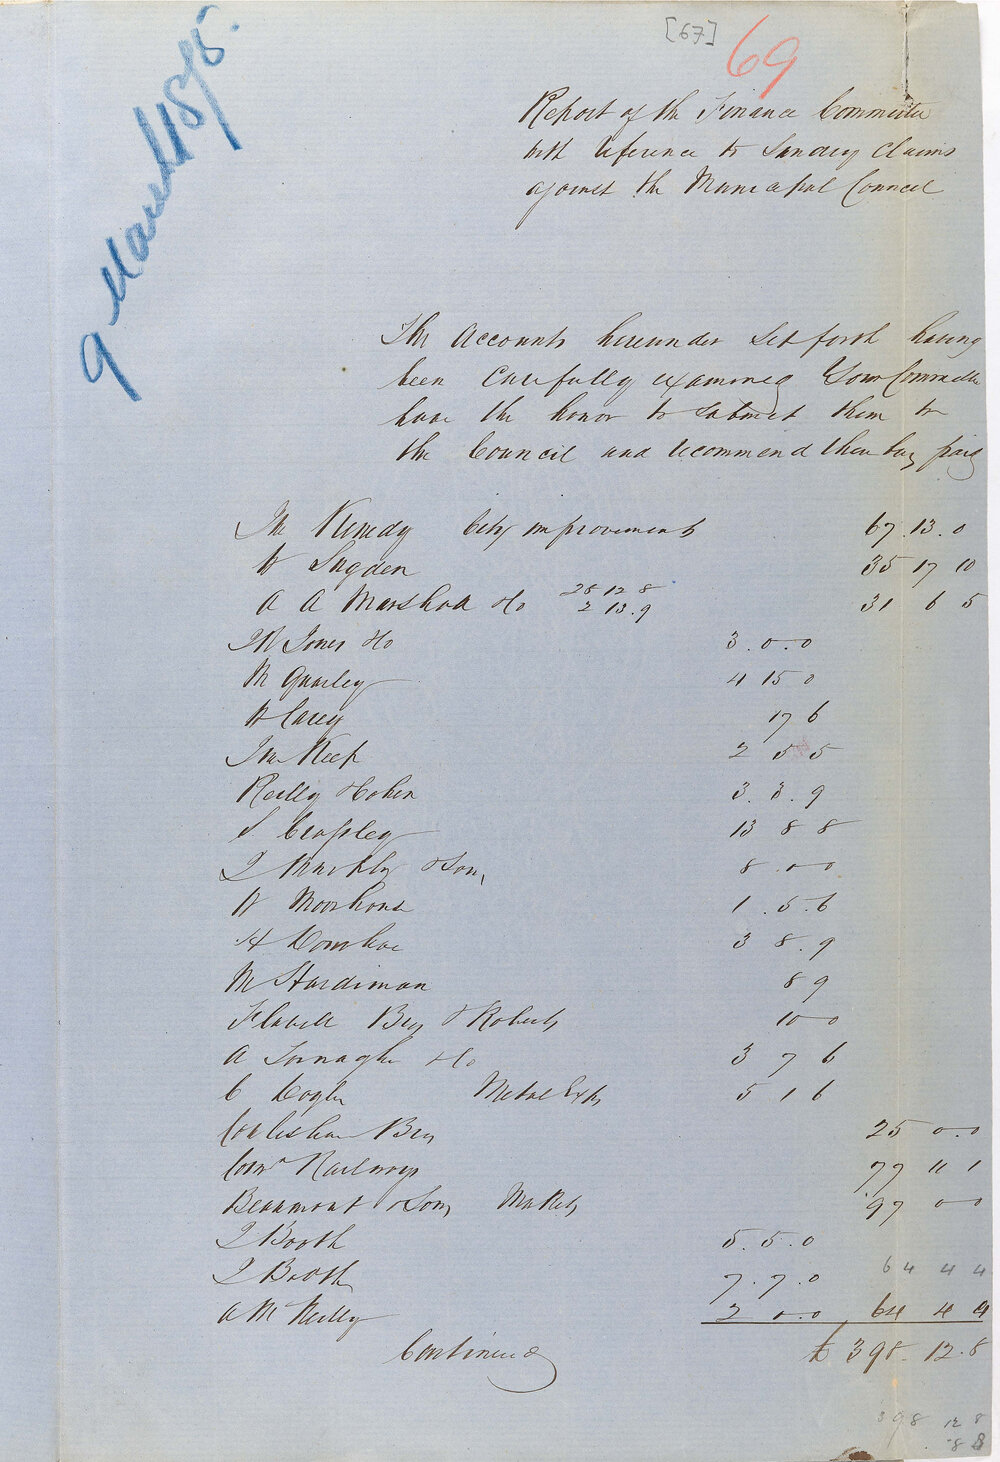 [67] 69
9 March 1875.
Report of the Finance Committee
with reference to Sundry Claims
against the Municipal Council
The Accounts hereunder Set forth having
been Carefully examined Your Committee
have the honor to Submit them to
the Council and recommend them being paid
Jn Kenedy City improvements 67.13.0
W Sugden 35 17 10
A A Marshall &Co 28 12 8 31 6 5
2 13.9
Jones &Co 3.0.0
M Quigley 4 15 0
W Carey 17 6
Jno Keep 2 5 5
Reilly & Cohen 3.3.9
S. Crossley 13 8 8
& Son, 8 .0 0
W Moorhouse 1.5.6
H Donohoe 3 8.9
M Hardiman 8 9
Flavelle Bros & Roberts 10 0
A Tornaghi &Co 3 7 6
C Coghlan Metrol Exhn 5 1 6
Coulishaw Bros 25 0.0
Comr Railways 77 11 1
Beaumont & Sons Markets 97 0 0
J Booth 5.5.0
J Booth 7.7.0 64 4 4
A M Reilly 2 0.0 64 4 4
Continued £ 398.12.8
398 12 8
8 8